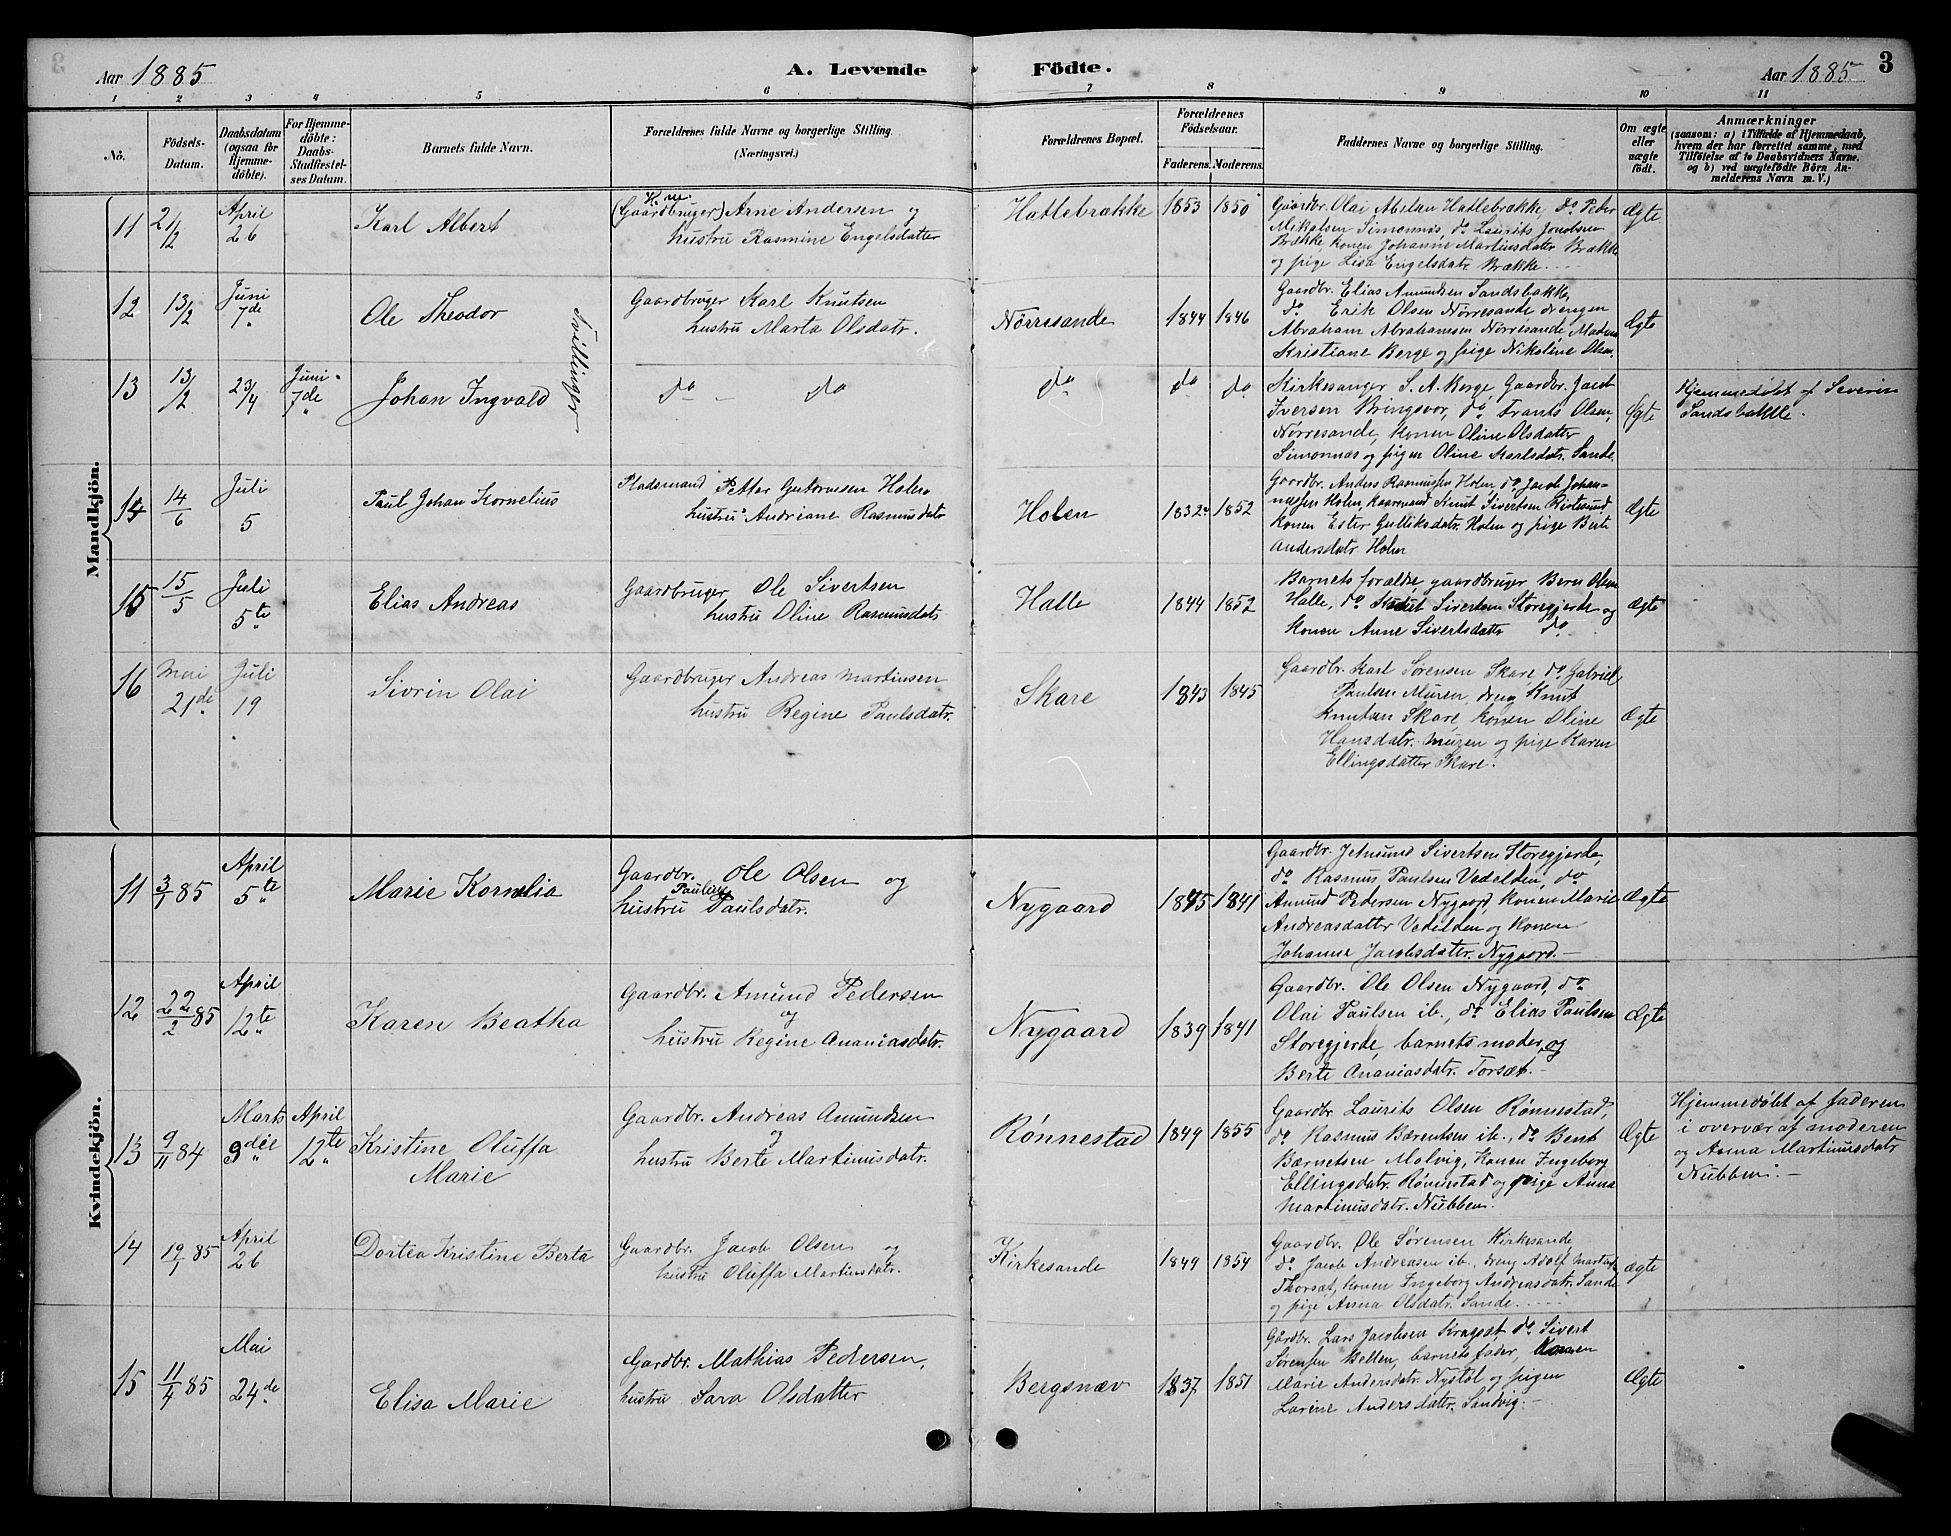 Aar 1885
A. Levende Födte.
Aar 1885
3
1 2 3 4 5 6 7 8 9 10 11
No.
Födsels-
Datum.
Daabsdatum
(ogsaa for
Hjemme-
döbte).
For Hjemme-
döbte:
Daabs-
Stadfæstel-
ses Datum.
Barnets fulde Navn.
Forældrenes fulde Navne og borgerlige Stilling.
(Næringsvei.)
Forældrenes Bopæl.
Forældrenes
Födselsaar.
Faderens. Moderens.
Faddernes Navne og borgerlige Stilling.
Om ægte
eller
uægte
födt.
Anmærkninger
(saasom: a) i Tilfælde af Hjemmedaab,
hvem der har forrettet samme, med
Tilföielse af to Daabsvidners Navne,
og b) ved uægtefödte Börn An-
melderens Navn m. V.)
Mandkjön.
11
21/12
April
26
Karl Albert
(Gaardbruger) Arne Andersen og
hustru Rasmine Engelsdatter
Hatlebrække
1853 1850
Gaardbr. Olai Hatlebrække, do Peder
Mikalsen Simonnæs, do Laurits Jacobsen
Brække, konen Johanne Martinusdater Brække
og pige Lisa Engelsdatr. Brække.
Ægte
12
13/2
Juni
7de
Ole Theodor
Tvillinger
Gaardbruger Karl Knutsen
hustru Marta Olsdatr.
Nörresande
1844 1846
Gaardbr. Elias Amundsen Sandsbakke,
do Erik Olsen Nörresande drengen
Abraham Abrahamsen Nörresande, Madam
Kristiane Berge og pige Nikoline Olsen.
Ægte
13
13/2
23/4
Juni
7de
Johan Ingvald
do do
do
do do
Kirkesanger S. A. Berge, Gaardbr. Jacob
Iversen Bringsvor, do Frants Olsen,
Nörresande, konen Oline Olsdatter
Simonnæs og pigen Oline Karlsdatr. Sande.
Ægte
Hjemmedöbt af Severin
Sandsbakke.
14
14/6
Juli
5
Paul Johan Kornelius
Pladsmand Petter Guttormsen Holen
hustru Andriane Rasmusdatr
Holen
1832 1852
Gaardbr. Anders Rasmussen Holen do. Jacob Johan-
nessen Holen, Knut Sivertsen
konen Ester Gulliksdatr. Holen og pige Berte
Andersdatr. Holen
Ægte
15
15/5
Juli
5te
Elias Andreas
Gaardbruger Ole Sivertsen
hustru Oline Rasmusdatr
Halle
1844 1852
Barnets forældre, gaardbruger Bern Olsen
Halle, do Knut Sivertsen Storegjerde og
konen Anne Sivertsdatter do
Ægte
16
Mai
21de
Juli
19
Sivrin Olai
Gaardbruger Andreas Martinsen
hustru Regine Paulsdatr.
Skare
1843 1845
Gaardbr. Karl Sørensen Skare, do Gabriel
Paulsen Muren, dreng Knut
Knutsen Skare, konen Oline
Hansdatr. Muren og pige Karen
Ellingsdatter Skare.
Ægte
Kvindekjön.
11
3/1 85
April
5te
Marie Kornelia
Gaardbr. Ole Olsen og
hustru Pauline Paulsdatr.
Nygaard
1845 1841
Gaardbr. Jetmund Sivertsen Storegjerde,
do Rasmus Paulsen Vedelden, do
Amund Pedersen Nygaard, konen Marie
Andreasdatter Vedelden og konen
Johanne Jacobsdatter. Nygaard.-
Ægte
12
22/2 85
April
12te
Karen Beatha
Gaardbr. Amund Pedersen
og
hustru Regine Ananiasdatr.
Nygaard
1839 1841
Gaardbr. Ole Olsen Nygaard, do
Olai Paulsen ib., do Elias Paulsen
Storegjerde, barnets moder, og
Berte Ananiasdatr. Torsæt.-
Ægte
13
9/11 84
Marts
9die
April
12te
Kristine Oluffa
Marie
Gaardbr. Andreas Amundsen
og
hustru Berte Martinusdatr.
Rönnestad
1849 1855
Gaardbr Laurits Olsen Rønnestad,
do Rasmus Bærentsen ib., do Bent
Bærnetsen Molvig, konen Ingeborg
Ellingsdatr. Rønnestad og pige Anna
Martinusdatr. Nubben
Ægte
Hjemmedøbt af faderen
i overvær af moderen
og Anna Martinusdatr
Nubben.-
14
19/1 85
April
26
Dortea Kristine Berta
Gaardbr. Jacob Olsen og
hustru Oluffa Martinsdatr.
Kirkesande
1849 1854
Gaardbr. Ole Sørensen Kirkesande
do Jacob Andreasen ib., dreng Adolf
Thorsæt, konen Ingeborg Andreasdatr. Sande
og pige Anna Olsdatr. Sande.
ægte
15
11/4 85
Mai
24de
Elisa Marie
Gardbr. Mathias Pedersen,
hustru Sara Olsdatter
Bergsnæv
1837 1851
Gårdbr. Lars Jacobsen Kragset, do Sivert
Sørensen Belten, barnets fader, konen
Marie Andersdatr. Nystøl og pigen
Larine Andersdatter. Sandvig.-
Ægte